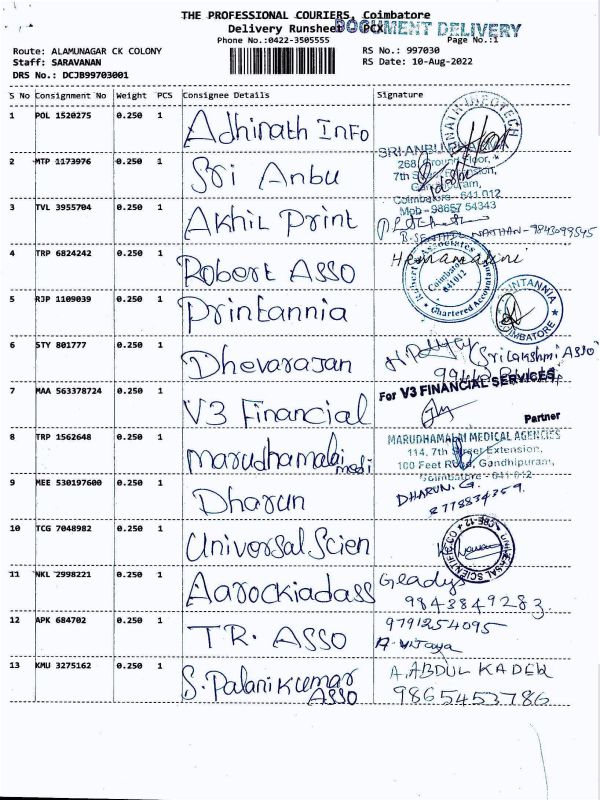 THE PROFESSIONAL COURIERS, Coimbatore
Delivery Runsheet - PCX
DOCUMENT DELIVERY
Phone No.:0422-3505555
Page No.:1
Route: ALAMUNAGAR CK COLONY
RS No.: 997030
Staff: SARAVANAN
RS Date: 10-Aug-2022
DRS No.: DCJB99703001
S No Consignment No Weight PCS Consignee Details Signature
1 POL 1520275 0.250 1 Adhinath Info
2 MTP 1173976 0.250 1 Sri Anbu
SRI ANBU
268, Ground Floor,
7th Street Extension,
Coimbatore - 641 012
Mob - 98657 54343
3 TVL 3955704 0.250 1 Akhil Print
4 TRP 6824242 0.250 1 Robert Asso
Hemamalini
Robert Associates
Coimbatore
641012
Chartered Accountants
5 RJP 1109039 0.250 1 Printannia
PRINTANNIA
COIMBATORE
6 STY 801777 0.250 1 Dhevarajan
(Sri Lakshmi Asso)
7 MAA 563378724 0.250 1 V3 Financial
For V3 FINANCIAL SERVICES
Partner
8 TRP 1562648 0.250 1 Marudhamalai medi
MARUDHAMALAI MEDICAL AGENCIES
114, 7th Street Extension,
100 Feet Road, Gandhipuram,
Coimbatore - 641 012
9 MEE 530197600 0.250 1 Dharun
DHARUN. G.
10 TCG 7048982 0.250 1 Universal Scien
11 NKL 2998221 0.250 1 Aarockiadass
Gladys
9843849283
12 APK 684702 0.250 1 TR. ASSO
9791254095
A. Vijaya
13 KMU 3275162 0.250 1 S. Palanikumar ASSO
A. ABDUL KADER
9865453786